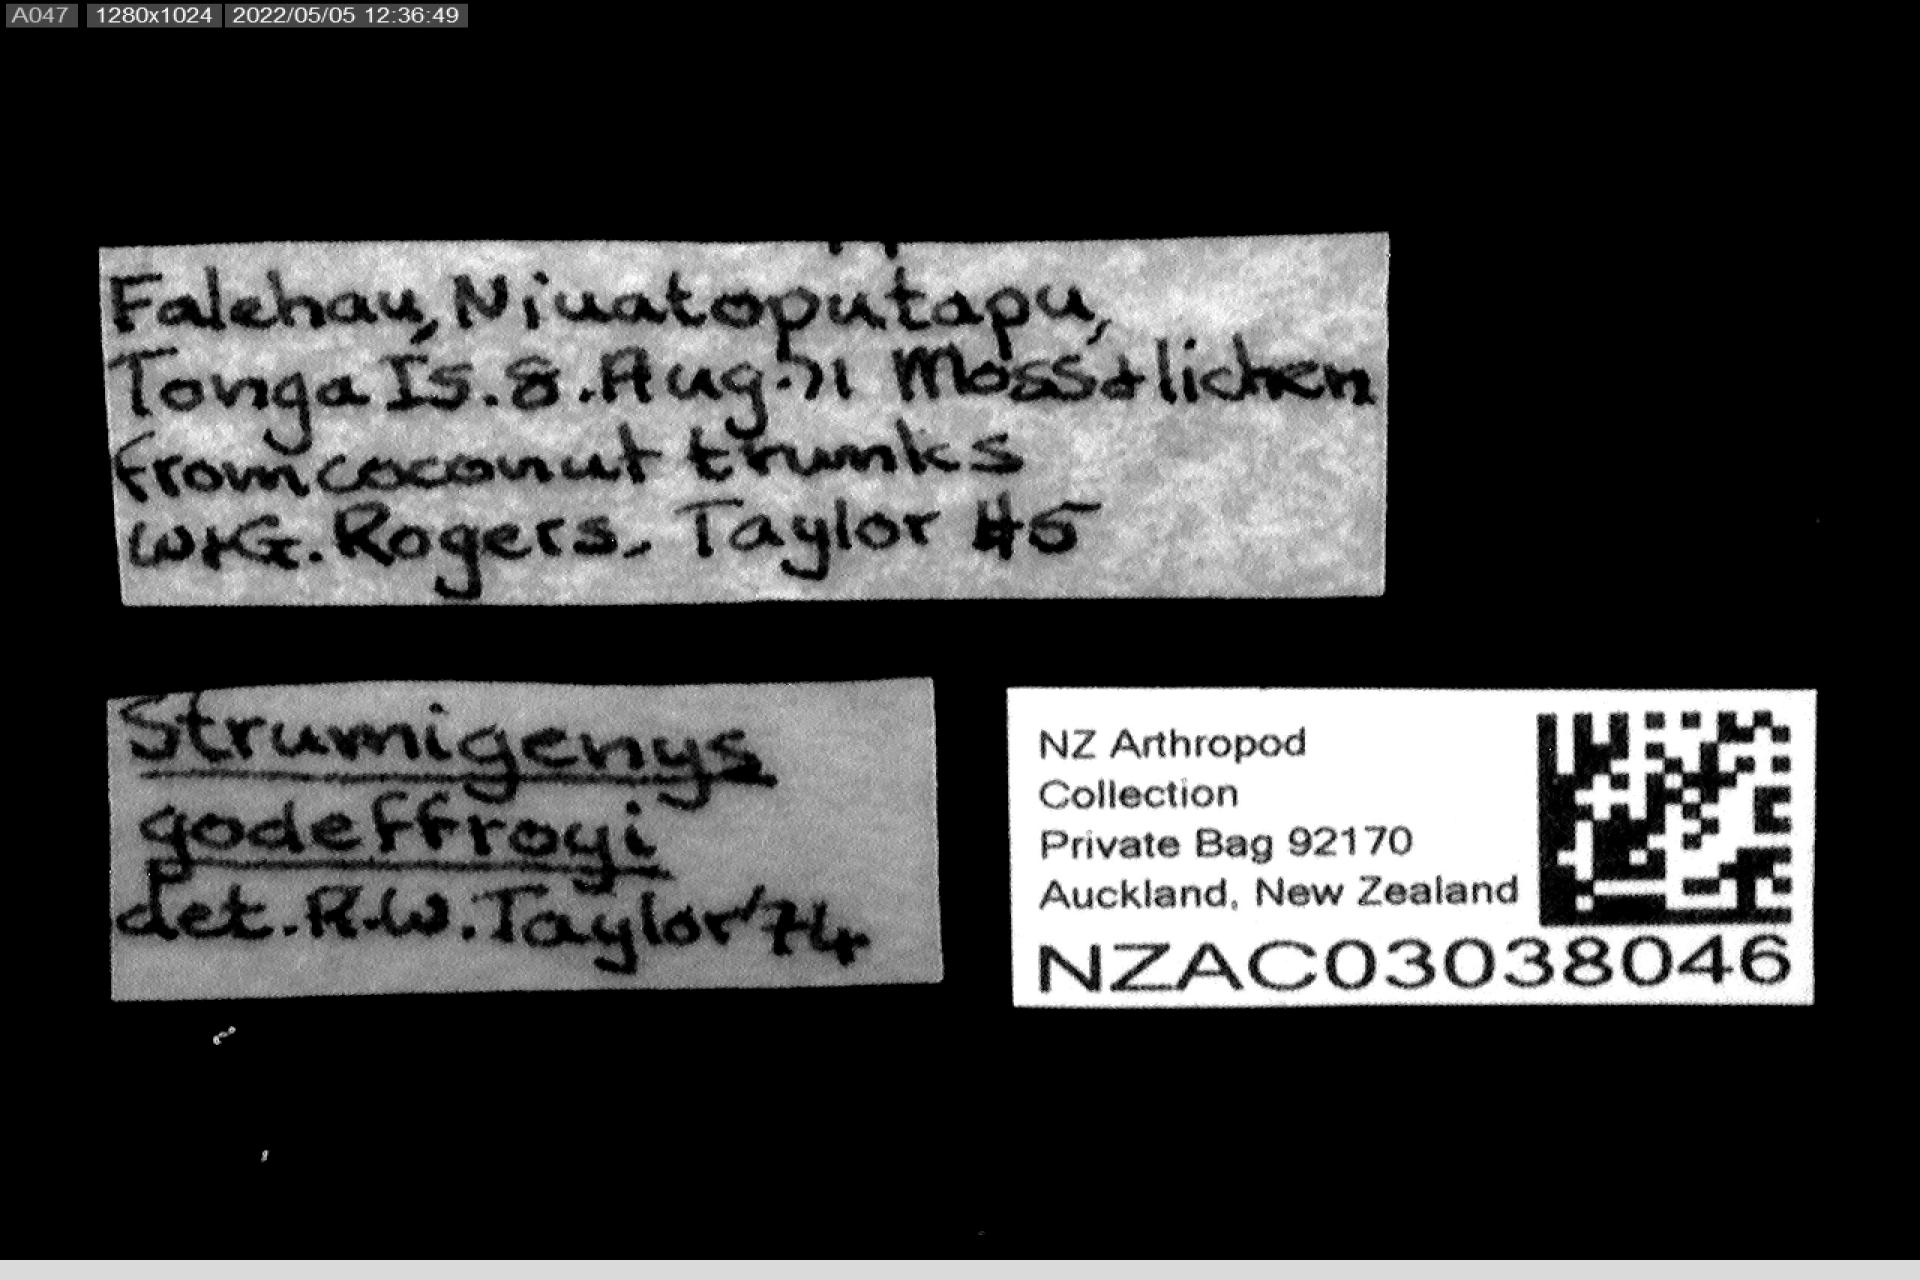 A047 1280x1024 2022/05/05 12:36:49
Falehau, Niuatoputapu,
Tonga Is. 8. Aug. 71 Moss & lichen
from coconut trunks
W & G. Rogers. Taylor #5
Strumigenys
godeffroyi
det. R.W. Taylor '74
NZ Arthropod
Collection
Private Bag 92170
Auckland, New Zealand
NZAC03038046